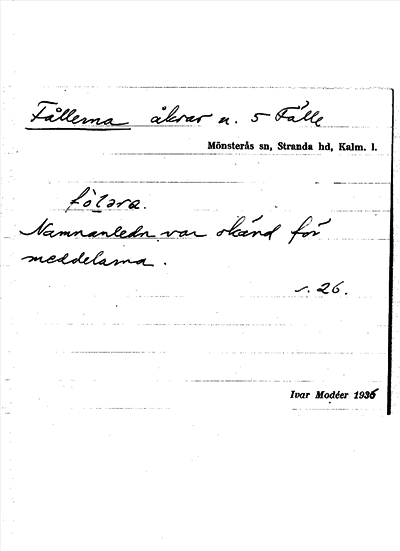 Fållerna åkrar u. 5 Fålle
Mönsterås sn, Stranda hd, Kalm. l.
Namnanledn. var okänd för
meddelarna.
s. 26.
Ivar Modéer 1936